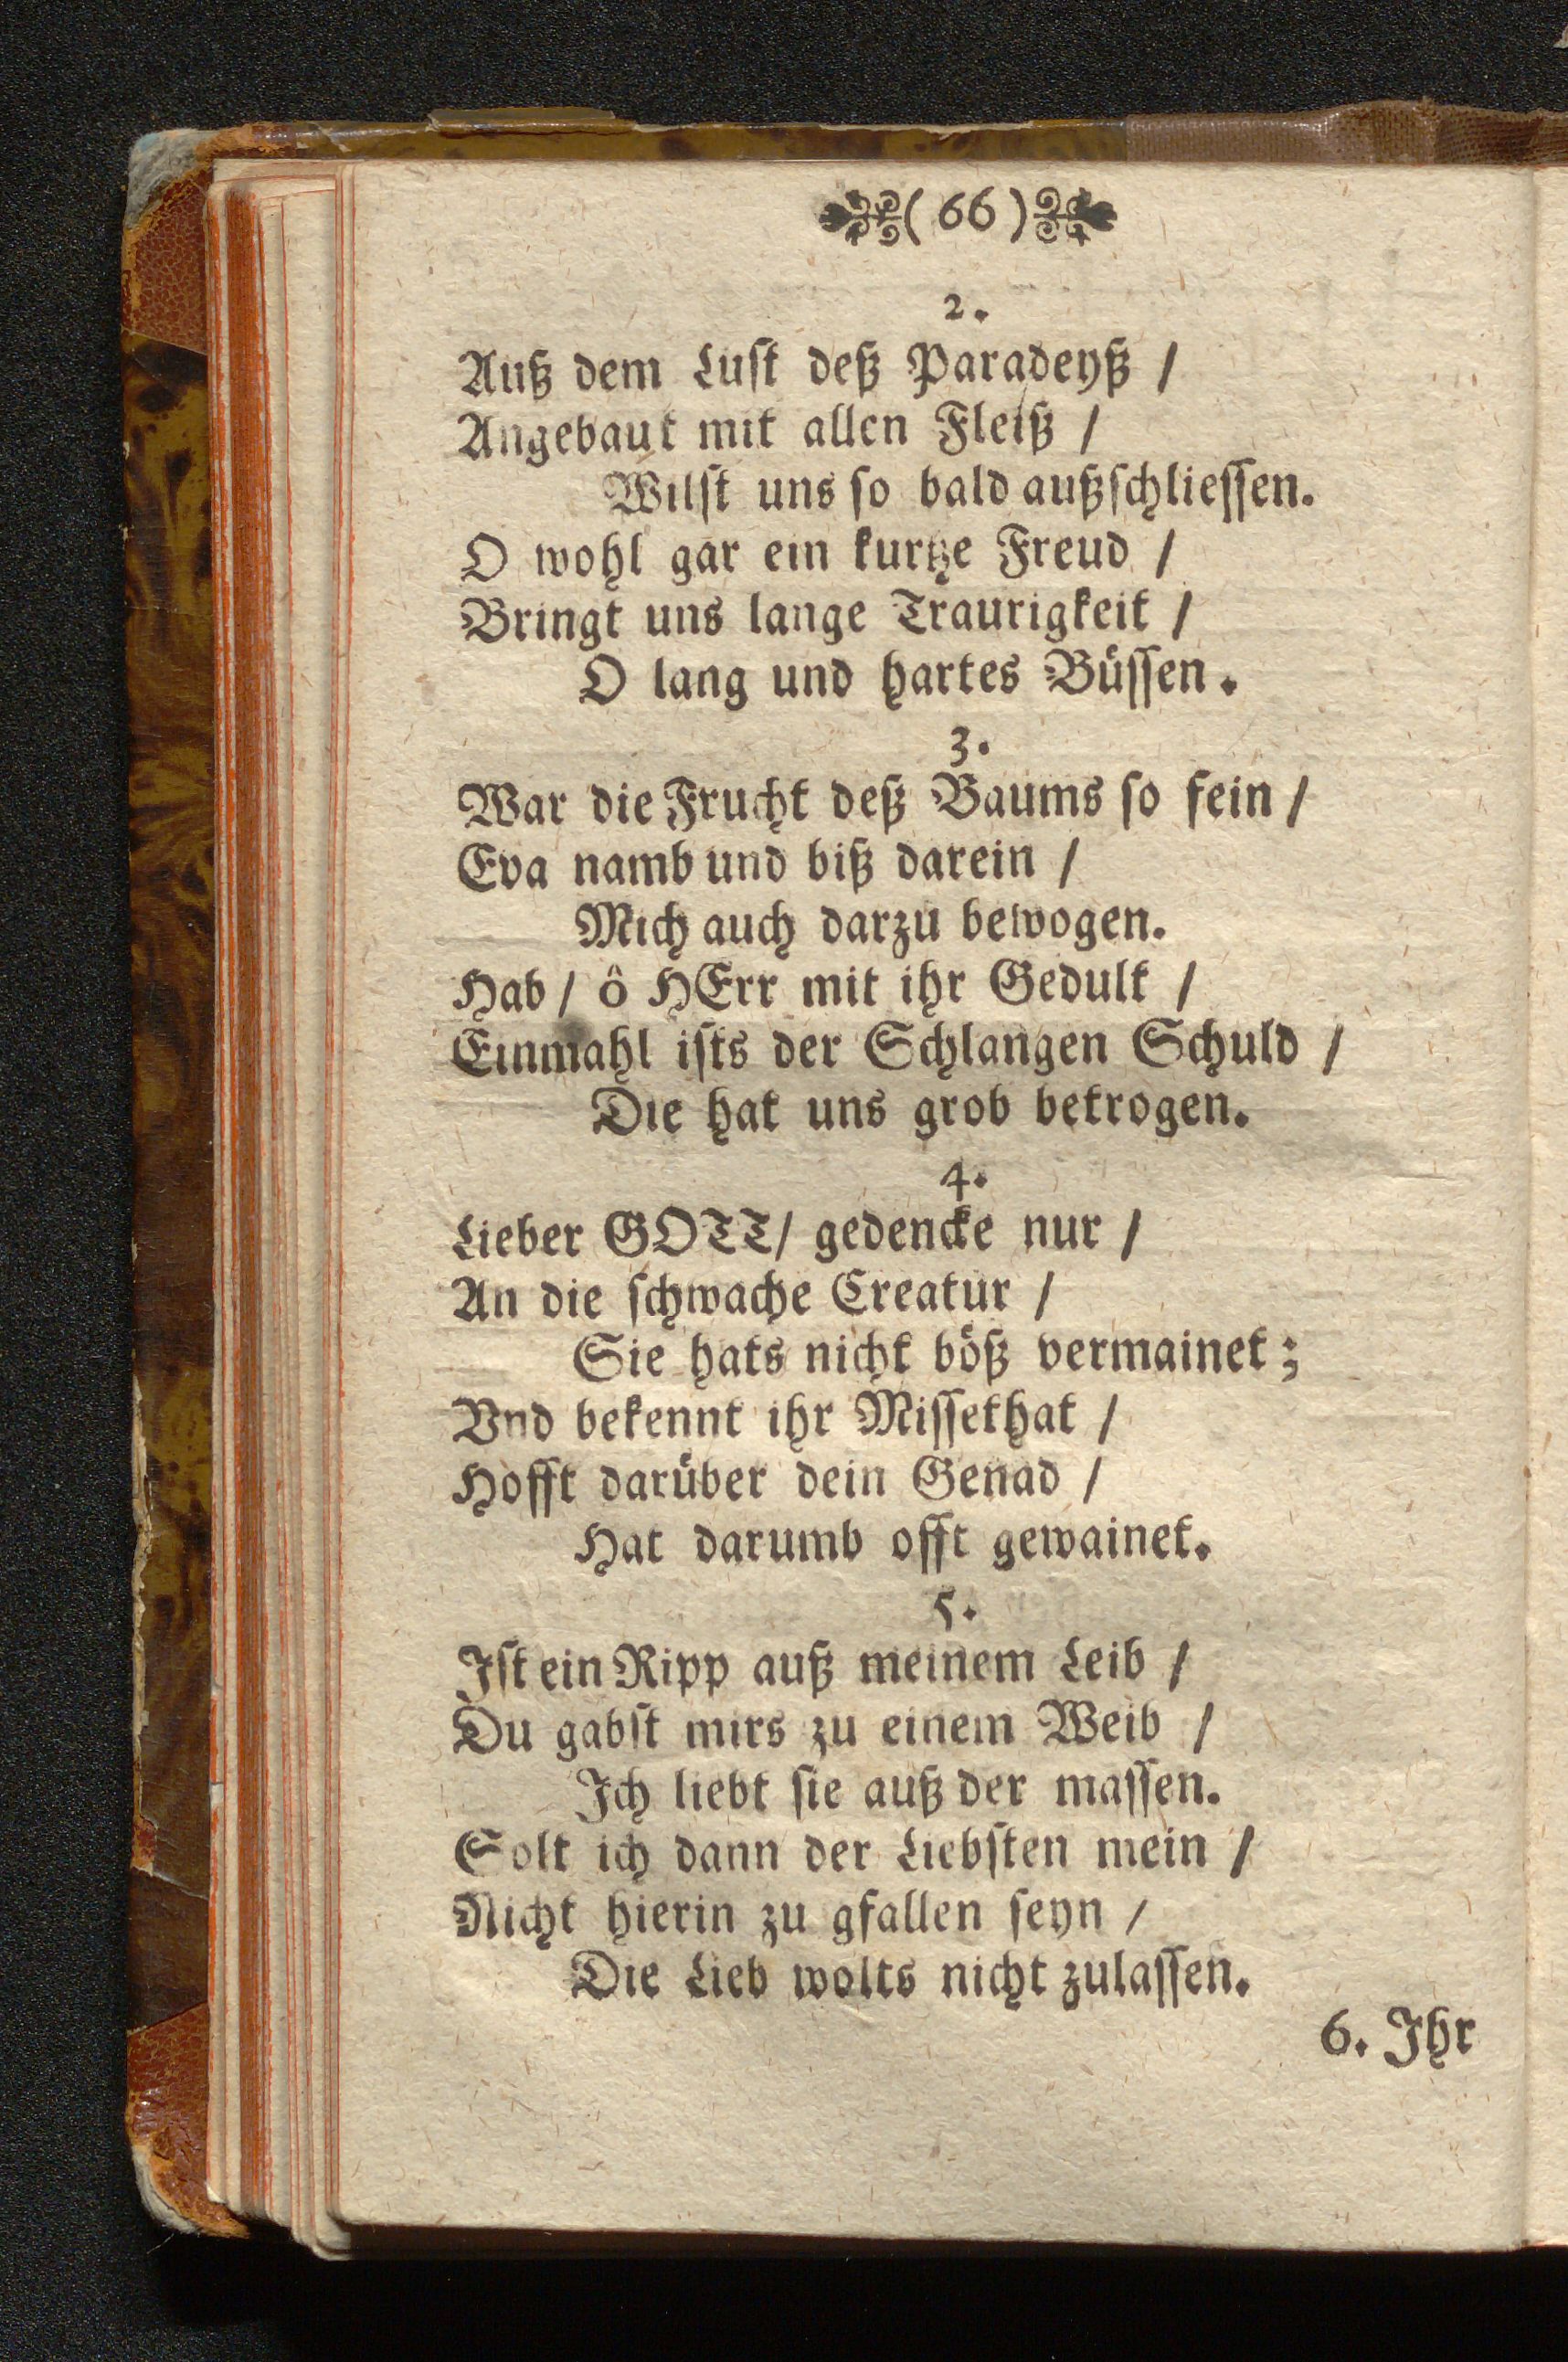 ( 66 )
2.
Auß dem Lust deß Paradeyß /
Angebaut mit allen Fleiß /
Wilst uns so bald außschliessen.
O wohl gar ein kurtze Freud /
Bringt uns lange Traurigkeit /
O lang und hartes Büssen.
3.
War die Frucht deß Baums so fein /
Eva namb und biß darein /
Mich auch darzu bewogen.
Hab / ô HErr mit ihr Gedult /
Einmahl ists der Schlangen Schuld /
Die hat uns grob betrogen.
4.
Lieber GOTT / gedencke nur /
An die schwache Creatur /
Sie hats nicht böß vermainet;
Vnd bekennt ihr Missethat /
Hofft darüber dein Genad /
Hat darumb offt gewainet.
5.
Ist ein Ripp auß meinem Leib /
Du gabst mirs zu einem Weib /
Ich liebt sie auß der massen.
Solt ich dann der Liebsten mein /
Nicht hierin zu gfallen seyn /
Die Lieb wolts nicht zulassen.
6. Ihr